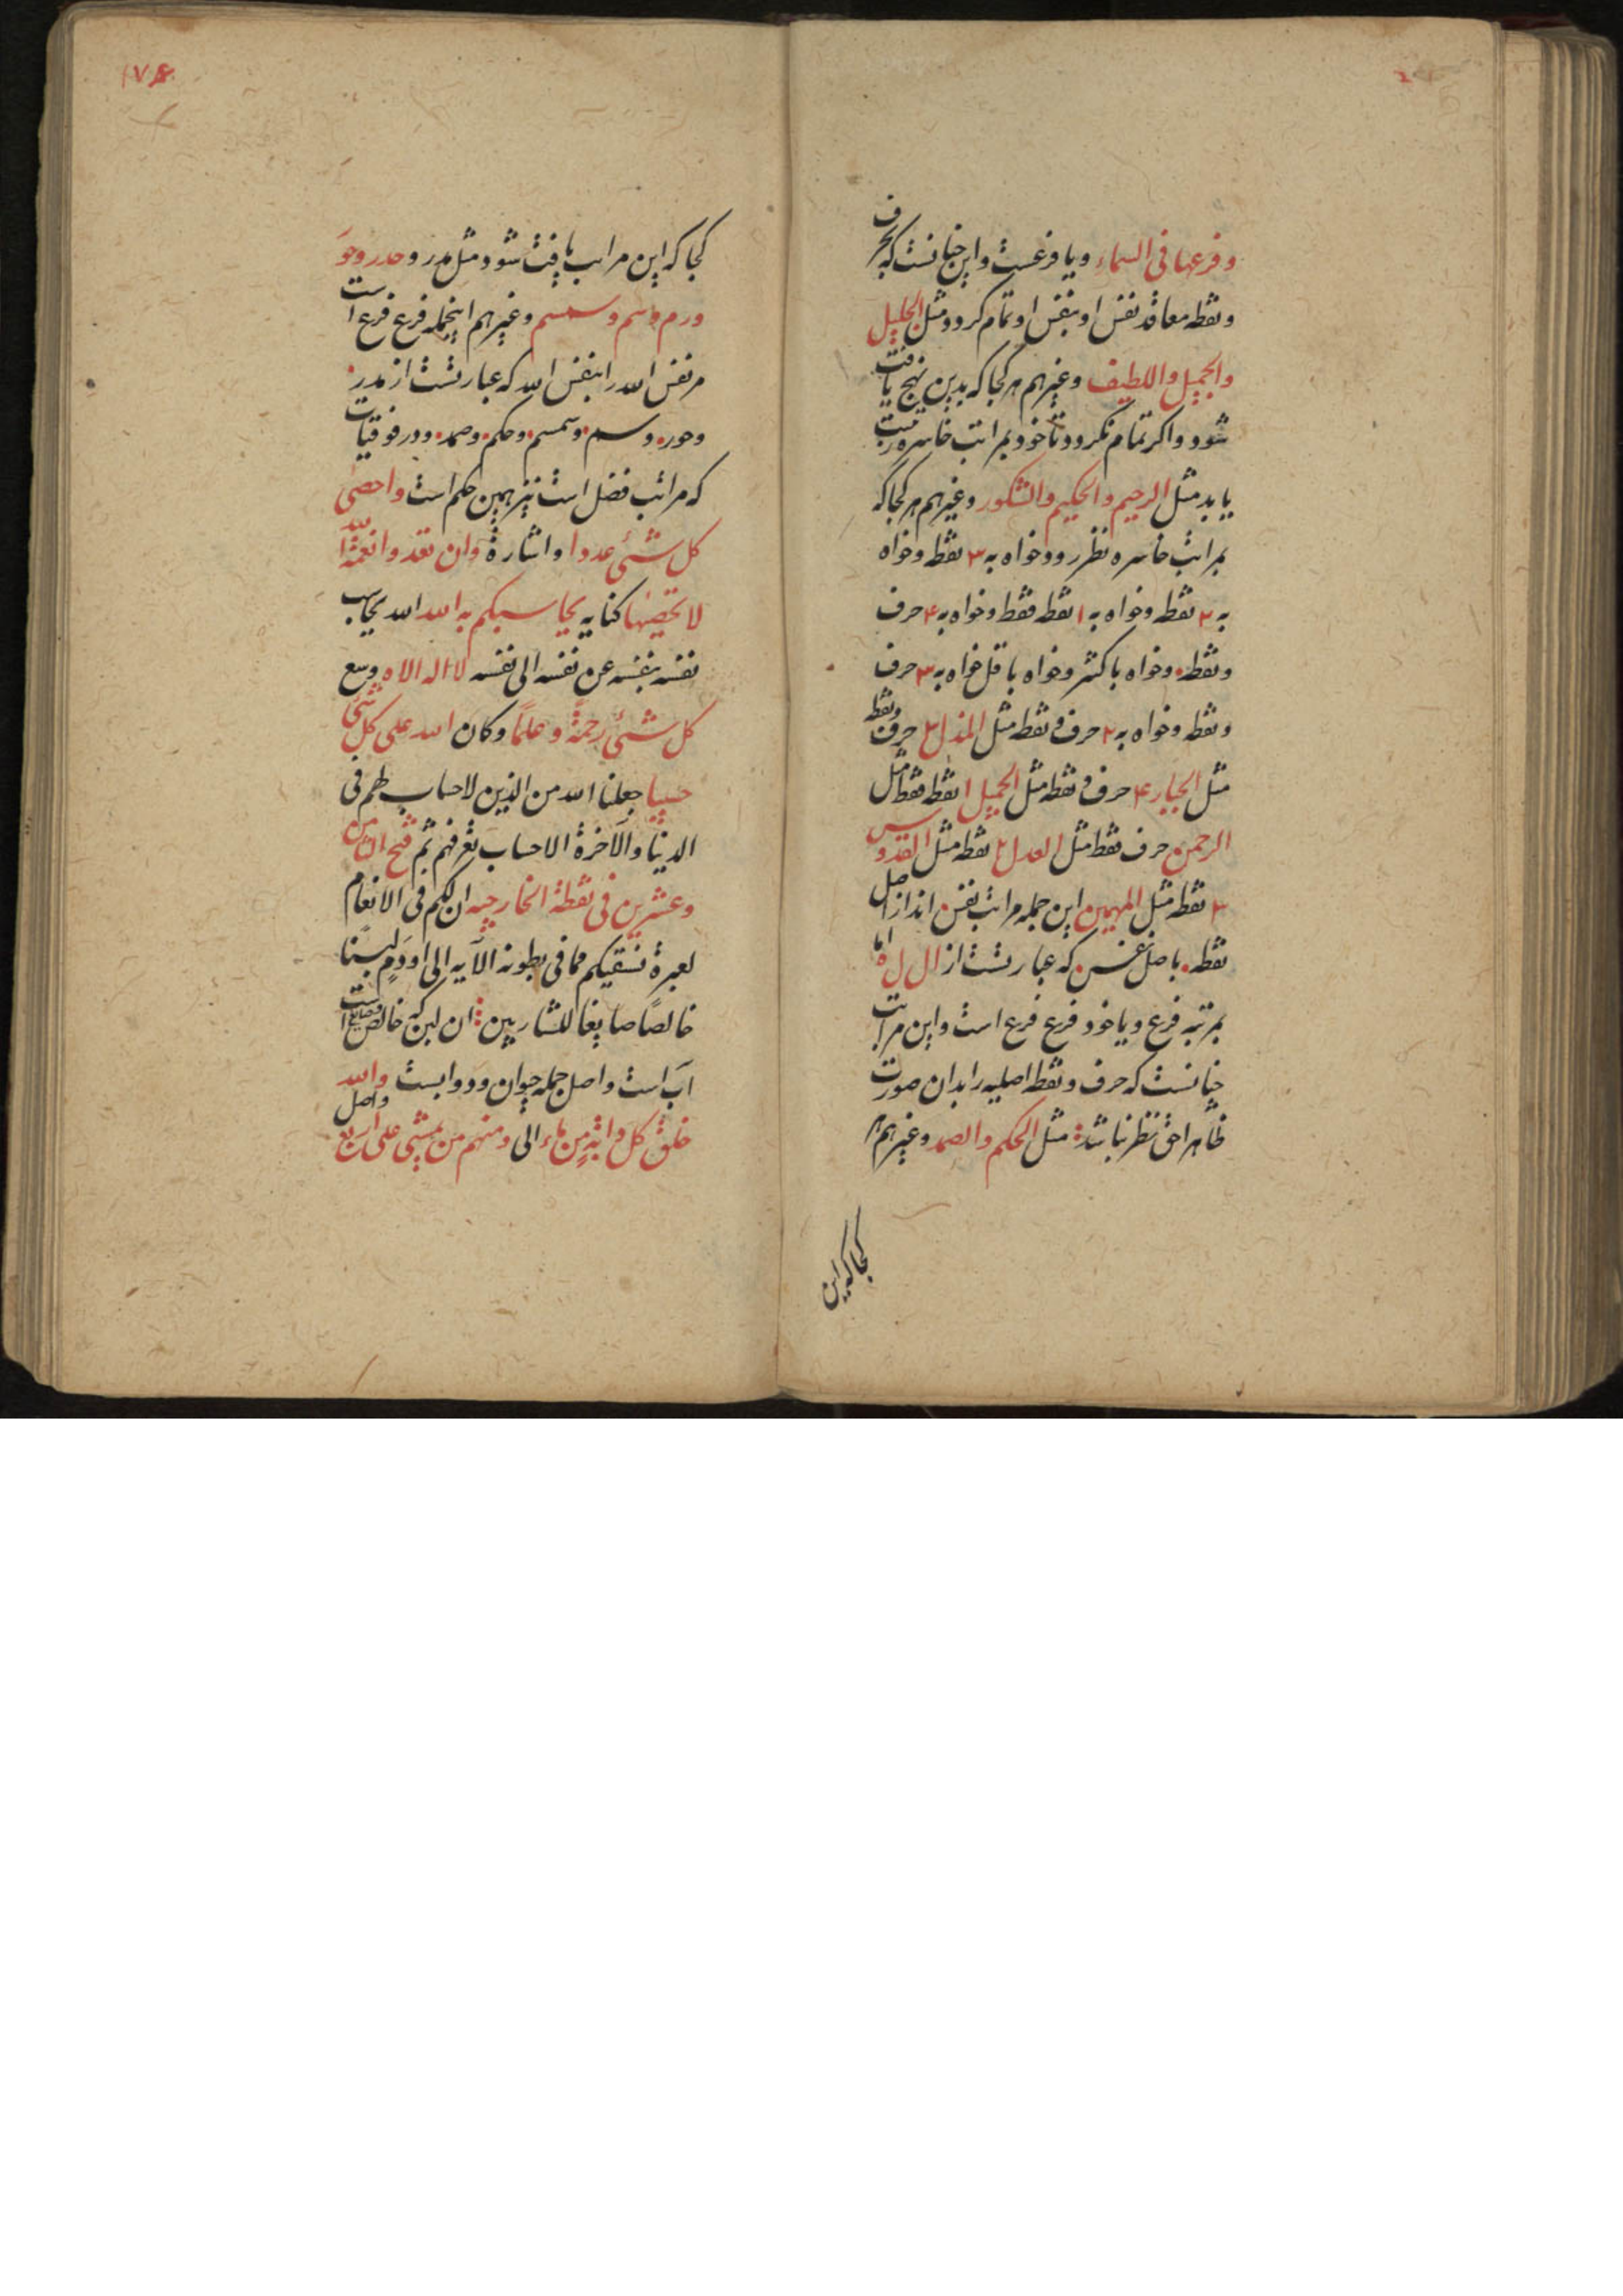 وفرعها فی السماء ویا فرعست واین چنانست که بحرف
ونقطه معاقد نفس او بنفس او تمام کردد مثل الجلیل
والجمیل واللطیف وغیرهم هر کجا که بدین نهج یافت
شود واکر تمام نکردد تا خود بمراتب خاسره تربیت
یابد مثل الرحیم والحکیم والشکور وغیرهم هر کجا که
بمراتب خاسره نظر رود خواه به ۳ نقطه وخواه
به ۲ نقطه وخواه به ۱ نقطه فقط وخواه به ۴ حرف
ونقطه وخواه باکثر وخواه باقل خواه به ۳ حرف
ونقطه وخواه به ۲ حرف و نقطه مثل المذل ۲ حرف ونقطه
مثل الجبار ۴ حرف و نقطه مثل الجمیل ۱ نقطه فقط مثل
الرحمن حرف نقطه مثل العدل ۲ نقطه مثل القدوس
۳ نقطه مثل المهیمن این جمله مراتب نفس اند از اصل
نقطه باصل غسن که عبارتست از ال ل ه اما
بمرتبه فرع ویا خود فرع فرع است واین مراتب
چنانست که حرف ونقطه اصلیه را بدان صورت
ظاهرا حق نظر نباشد مثل الحکم والصمد وغیرهم هر
کجا که این
۱۷۶
کجا که این مراتب یافت شود مثل مدر وحدر وحو
ورم وسم وسمسم وغیرهم اینجمله فرع فرع است
مر نفس الله را بنفس الله که عبارتست از مدر
وحور وسم وسمسم وحکم وصمد ودر فوقیات
که مراتب فضل است نیز همین حکم است واحصی
کل شئی عددا واشارة وان تعدوا نعمة الله
لا تحصیها کنایه یحاسبکم به الله الله یحاسب
نفسه بنفسه عن نفسه الی نفسه لا اله الا ه وسع
کل شئی رحمة وعلما وکان الله علی کل شئ
حسیبا جعلنا الله من الذین لا حساب لهم فی
الدنیا والآخرة الا حساب تعرفهم ثم فتح الثامن
وعشرین فی نقطة الخارجیه ان لکم فی الانعام
لعبرة نسقیکم مما فی بطونه الآیه الی ودم لبنا
خالصا صایغا للشاربین ان لبن که خالص است
آب است واصل جمله حیوان ودوابست والله
خلق کل دابة من ماء الی ومنهم من یمشی علی اربع